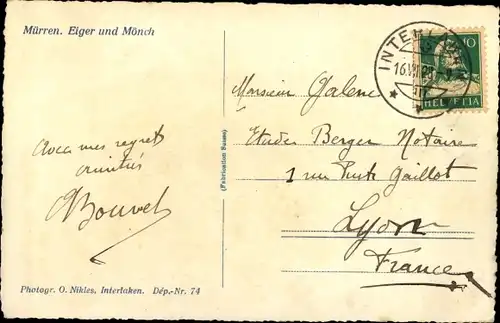 Mürren. Eiger und Mönch
INTERLAKEN
16.VII.28
10
HELVETIA
Monsieur Galene
Etude Berger Notaire
1 rue Puits Gaillot
Lyon
France
Avec mes regrets
amitiés
ABouvet
(Fabrication Suisse)
Photogr. O. Nikles, Interlaken. Dép.-Nr. 74